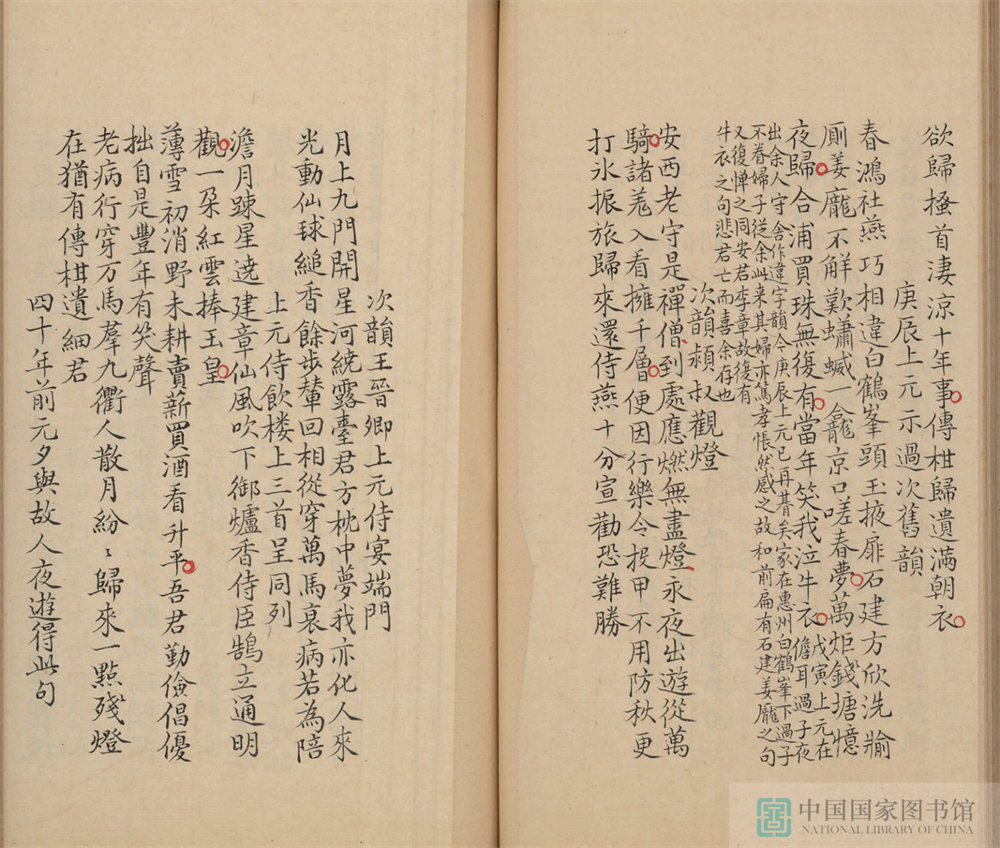 欲歸搔首淒涼十年事傳柑歸遺滿朝衣
庚辰上元示過次舊韻
春鴻社燕巧相違白鶴峯頭玉掖扉石建方欣洗牏
廁姜龐不解歎蠨蝛一龕京口嗟春夢萬炬錢塘憶
夜歸合浦買珠無復有當年笑我泣牛衣戊寅上元在
儋耳過子夜
出余人守舍作違字韻今庚辰上元已再朞矣家在惠州白鶴峯下過子
不眷婦子從余此来其婦亦篤孝悵然感之故和前扁有石建姜龐之句
又復悼之同安君李章故復有
牛衣之句悲君亡而喜余存也
次韻穎叔觀燈
安西老守是禪僧到處應燃無盡燈永夜出遊從萬
騎諸羗入看擁千層便因行樂令投甲不用防秋更
打氷振旅歸來還侍燕十分宣勸恐難勝
次韻王晉卿上元侍宴端門
月上九門開星河繞露臺君方枕中夢我亦化人來
光動仙球縋香餘步輦回相從穿萬馬衰病若為陪
上元侍飲楼上三首呈同列
澹月踈星遶建章仙風吹下御爐香侍臣鵠立通明
觀一朶紅雲捧玉皇
薄雪初消野未耕賣薪買酒看升平吾君勤儉倡優
拙自是豐年有笑聲
老病行穿万馬羣九衢人散月紛〻歸來一點殘燈
在猶有傳柑遺細君
四十年前元夕與故人夜遊得此句
中国国家图书馆
NATIONAL LIBRARY OF CHINA